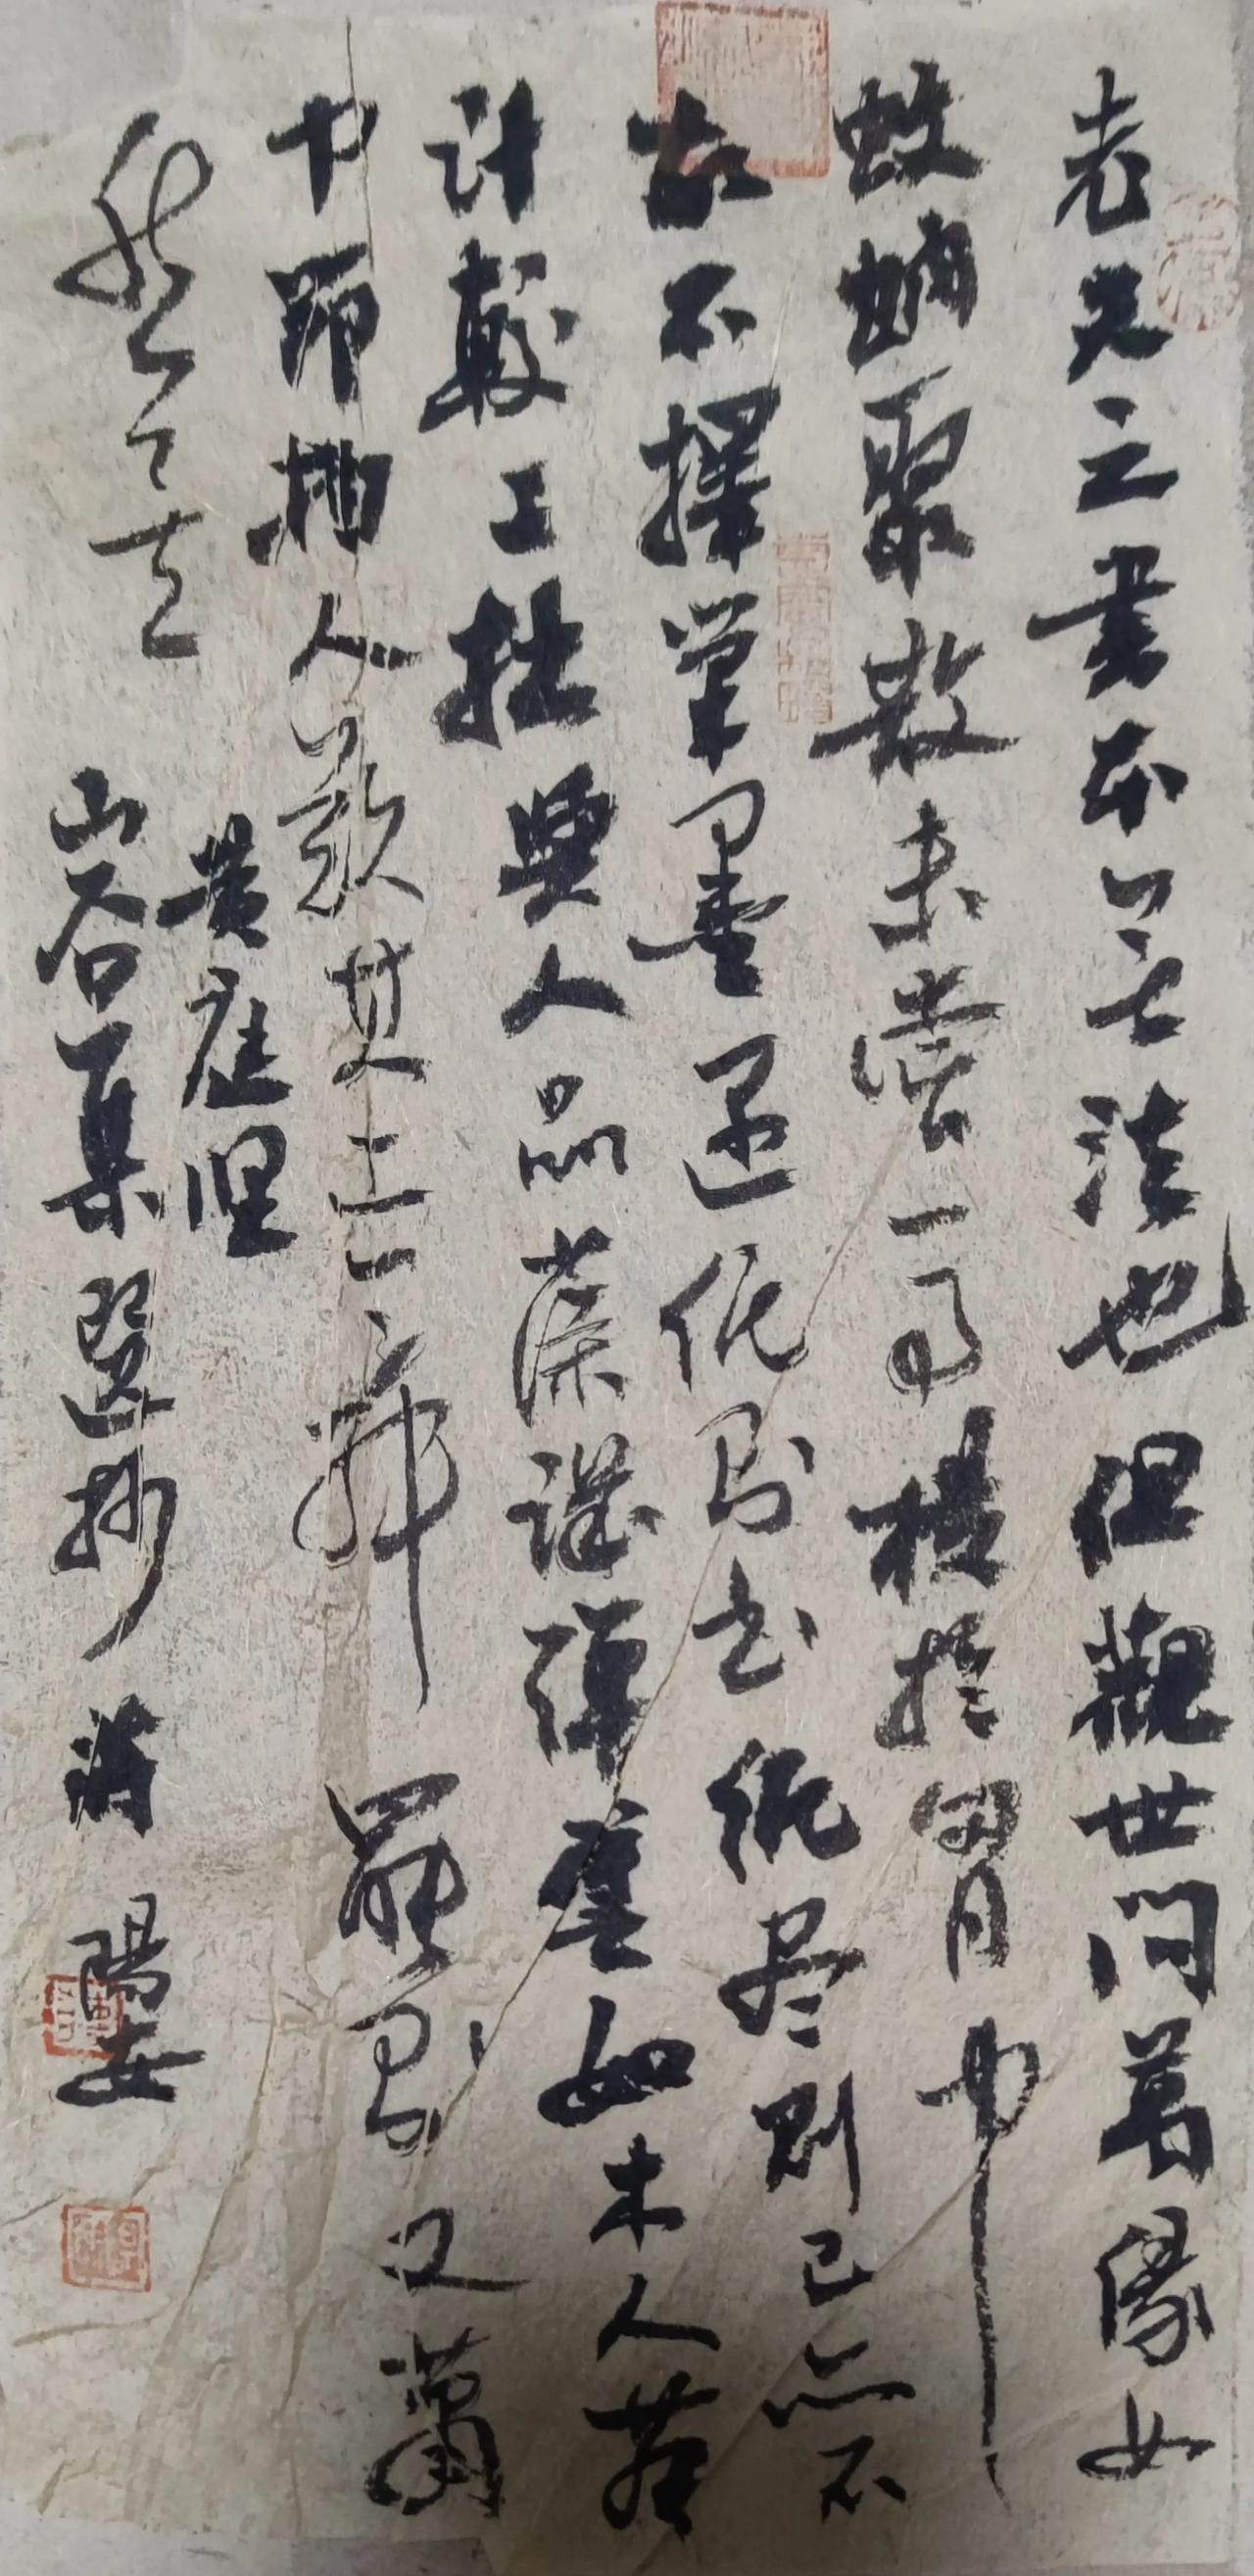 老夫之書本無法也但觀世間萬緣如
蚊蚋聚散未嘗一事橫於胸中
故不擇筆墨遇紙則書紙盡則已亦不
計較工拙與人品藻譏彈譬如木人舞
中節拍人歎其工舞罷則又蕭
然矣
黃庭堅
山谷集選抄